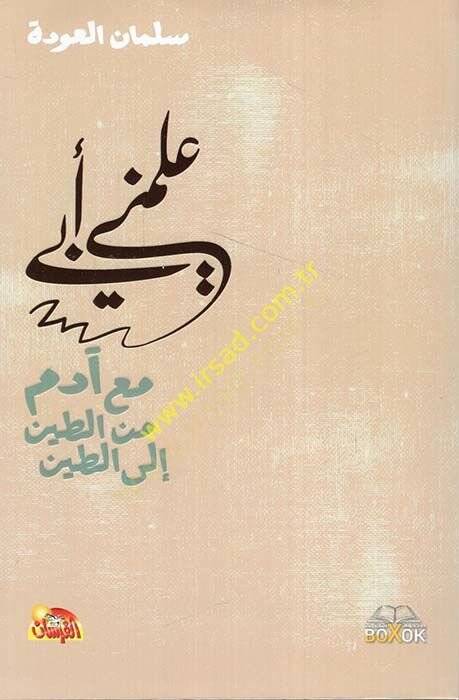 سلمان العودة
علمني أبي
مع آدم
من الطين
إلى الطين
www.irsad.com.tr
الفرسان
BOXOK